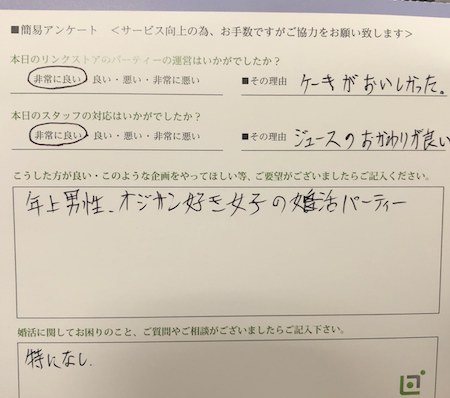 ■簡易アンケート ＜サービス向上の為、お手数ですがご協力をお願い致します＞
本日のリンクストアのパーティーの運営はいかがでしたか？
非常に良い・良い・悪い・非常に悪い ■その理由 ケーキがおいしかった。
本日のスタッフの対応はいかがでしたか？
非常に良い・良い・悪い・非常に悪い ■その理由 ジュースのおかわりが良い
こうした方が良い・このような企画をやってほしい等、ご要望がございましたらご記入ください。
年上男性、オジサン好き女子の婚活パーティー
婚活に関してお困りのこと、ご質問やご相談がございましたらご記入下さい。
特になし.